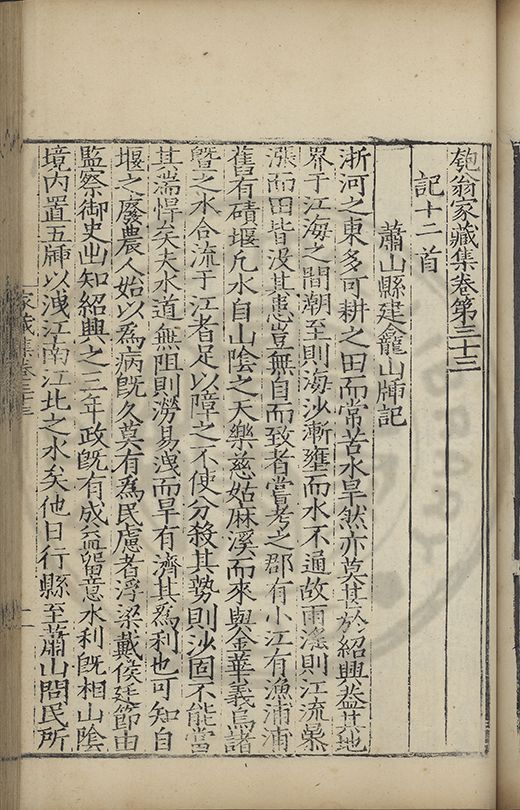 匏翁家藏集卷第三十三
記十二首
蕭山縣建龕山牐記
浙河之東多可耕之田而常苦水旱然亦莫甚於紹興蓋其地
界于江海之間潮至則海沙漸壅而水不通故雨滛則江流暴
漲而田皆没其患豈無自而致者嘗考之郡有小江有漁浦浦
舊有磧堰凡水自山陰之天樂慈姑麻溪而來與金華義烏諸
暨之水合流于江者足以障之不使分殺其勢則沙固不能當
其湍悍矣夫水道無阻則澇易洩而旱有濟其為利也可知自
堰之廢農人始以為病旣久莫有為民慮者浮梁戴侯廷節由
監察御史出知紹興之三年政旣有成益留意水利旣相山陰
境内置五牐以洩江南江北之水矣他日行縣至蕭山問民所
家藏集卷三十三
一